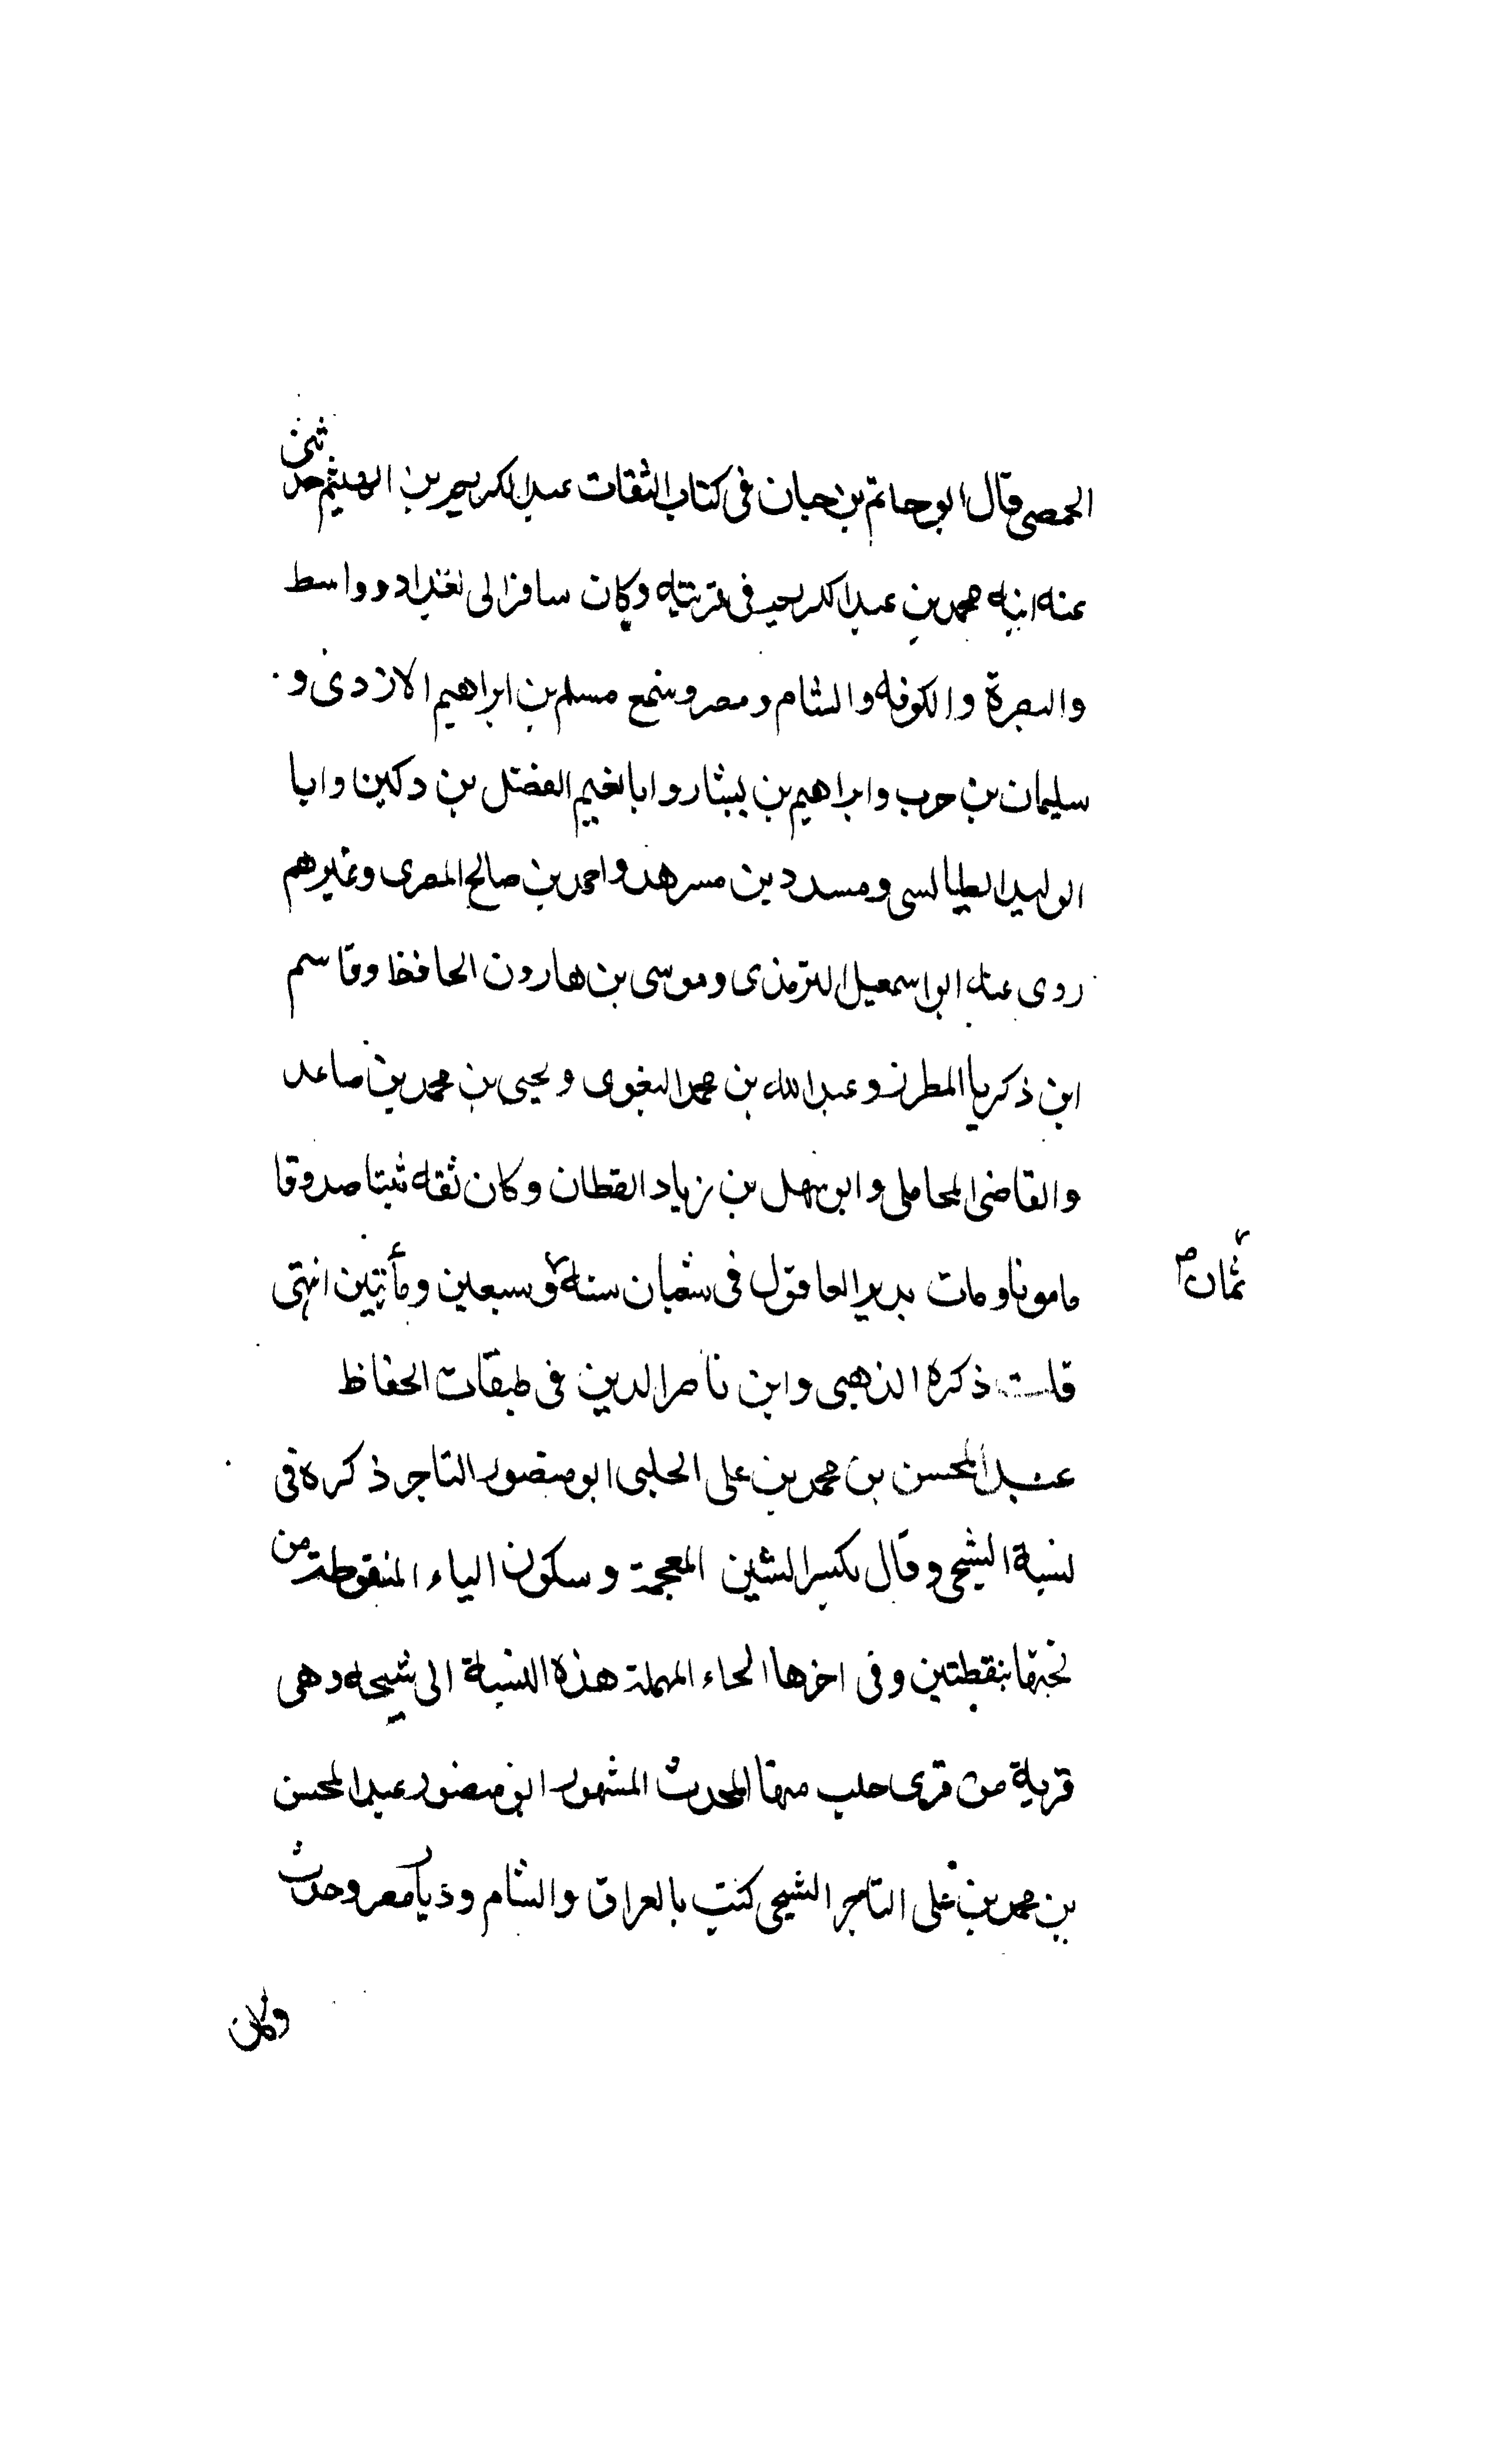 الحمصي قال ابو حاتم بن حبان في كتاب الثقات عبد الكريم بن الهيثم حدثني
عنه ابنه محمد بن عبد الكريم في قريته وكان سافر الى بغداد وواسط
والبصرة والكوفه والشام ومصر وسمع مسلم بن ابراهيم الازدى و
سليمان بن حرب وابراهيم بن بشار وابا نعيم الفضل بن دكين وابا
الوليد الطيالسي ومسدد بن مسرهد واحمد بن صالح المصرى وغيرهم
روى عنه ابو اسمعيل الترمذى وموسى بن هارون الحافظ وقاسم
ابن ذكريا المطرز وعبد الله بن محمد البغوى ويحيى بن محمد بن صاعد
والقاضى المحاملى وابو سهل بن زياد القطان وكان ثقه ثبتا صدوقا
مامونا ومات بدير العاقول في شعبان سنة وسبعين ومأتين انتهى
ثمان صح
قلت ذكره الذهبى وابن ناصر الدين في طبقات الحفاظ
عبد المحسن بن محمد بن على الحلبى ابو منصور التاجر ذكره في
نسبة الشيحى وقال بكسر الشين المعجمة وسكون الياء المنقوطة من
تحتها بنقطتين وفى اخرها الحاء المهملة هذه النسبة الى شيحه وهى
قرية من قرى حلب منها المحدث المشهور ابو منصور عبد المحسن
بن محمد بن على التاجر الشيحى كتب بالعراق والشام وديار مصر وحدث
وكان